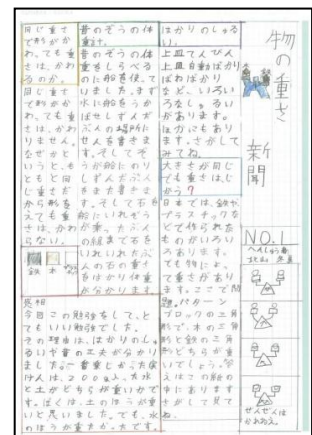 物の重さ
新聞
NO.1
へんしゅう者
ぜんぜんは
かわねえ。
はかりのしゅる
い。
上皿てんびん
上皿自動ばかり
ばねばかり
など、いろい
ろなしゅるい
があります。
ほかにもあり
ます。さがして
みてね。
大きさが同じ
でも重さはじ
がう?
日本では、鉄や
プラスチックな
どで作られた
ものがいろい
ろあります。
でも物によっ
て重さがあり
ます。ここで問
題。パターン
ブロックの三角
形で、木の三角
形と鉄の三角
形どちらが重
いでしょう。答
えはこの紙の
中にあります
さがして見て
ね。
昔のぞうの体
重さ。
昔のぞうの体
重さをしらべる
のに船を使って
いました。まず
水に船をうか
ばせしずんだ
ぶんの場所に
せんを書きま
す。そしてぞ
うが船にのり
しずんだぶん
をまた書きま
す。そして石を
船にいれぞう
が乗ったぶん
の線まで石を
いれいれたぶ
んの石の重さ
をはかり体重
が分かります
同じ重さ
で形がか
わっても重
さは、かわ
るのか。
同じ重さ
で形がか
わっても重
さは、かわ
りません。
なぜかと
いうと、も
ともと同
じ重さだ
から形を
えても重
さは、かわ
らない。
鉄 木
感想
今日この勉強をして、と
てもいい勉強でした。
その理由は、はかりのし
るいや昔の工夫が分かり
ました。一番楽しかった実
けんは、200mLの水
と土がどちらが重いかで
す。ぼくは、土のほうが重
いと思いました。でも、水
のほうが重たかったです。